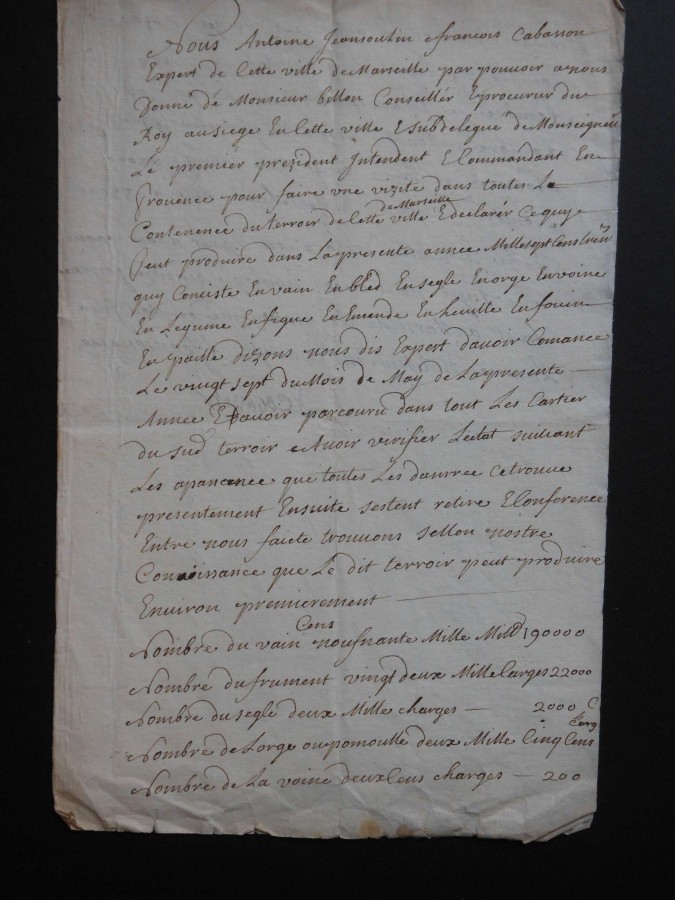 Nous Antoine Jeansoulin efrancois Cabasson
Expert de Cette ville de Marseille par pouvoir anous
Donné de Monsieur billon Conseillér Eprocurur du
Roy ausiege En Cette ville Esubdelegué de Monseigneu
Le premier president Intendent E Commandant En
Provence pour faire vne vizite dans toutes Le
de Marseille
Contenence du terroir de Cette ville Edeclarér Cequy
peut produire dans Lapresente année Mille sept Cens
quy Conciste En vain En bled En segle En orge En voine
En Legume En figue En Amende En heuille En fouin
En paille dizons nous dis Expert davoir Comance
Le vingt sept du Mois de May de Lapresente
Année Edavoir parcouru dans tout Les Cartier
du sud terroir eAvoir virifier Letat suiuant
Les aparance que toutes Les danrree Cetrouue
presentement Ensuite sestent retire E Conference
Entre nous faicte trouuons sellon nostre
Connoissance que Le dit terroir peut produire
Environ premierement
Cens
Nombre du vain nonante Mille Mill 190000
Nombre du frument vingt deux Mille Carges 22000
Nombre du segle deux Mille charges — 2000 C
Carg
Nombre de Lorge ou pomoulle deux Mille Cinq Cens
Nombre de La voine deux Cens charges — 200